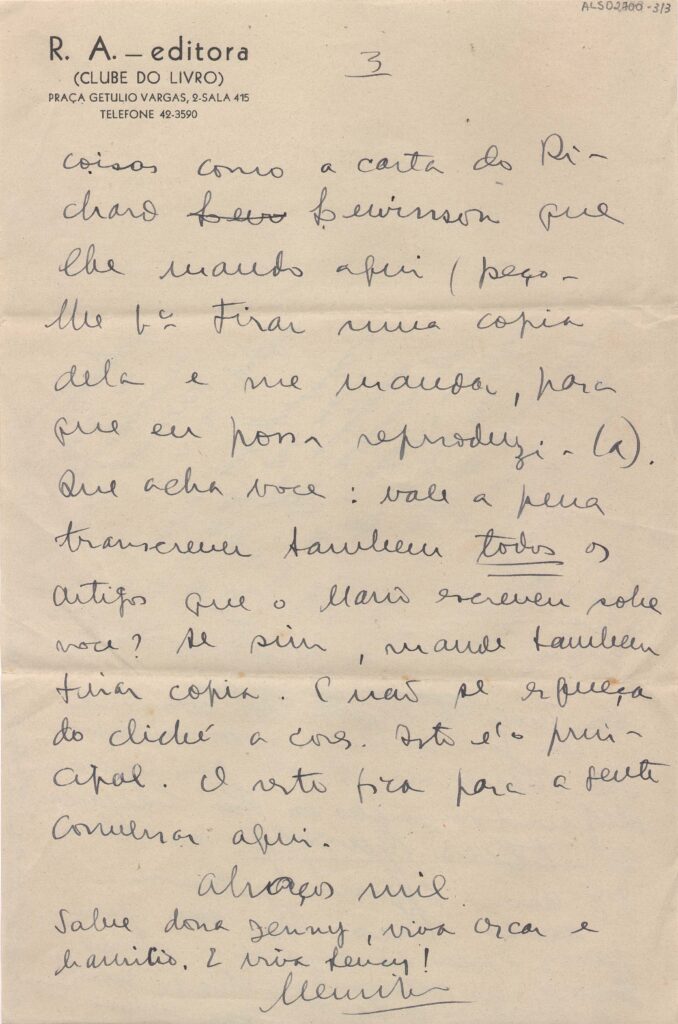 ALS02700-3/3
R. A. – editora
(CLUBE DO LIVRO)
PRAÇA GETULIO VARGAS, 2-SALA 415
TELEFONE 42-3590
3
coisas como a carta do Ri-
chard Lewinsson que
lhe mando aqui (peço-
lhe tirar uma copia
dela e me mandar, para
que eu possa reproduzi-la).
Que acha voce: vale a pena
transcrever tambem todos os
artigos que o Mario escreveu sobre
voce? Se sim, mande tambem
tirar copia. E não se esqueça
do cliché a cores. Isto é o prin-
cipal. O resto fica para a gente
conversar aqui.
Abraços mil
Salve dona Jenny, viva Oscar e
Mauricio. E viva